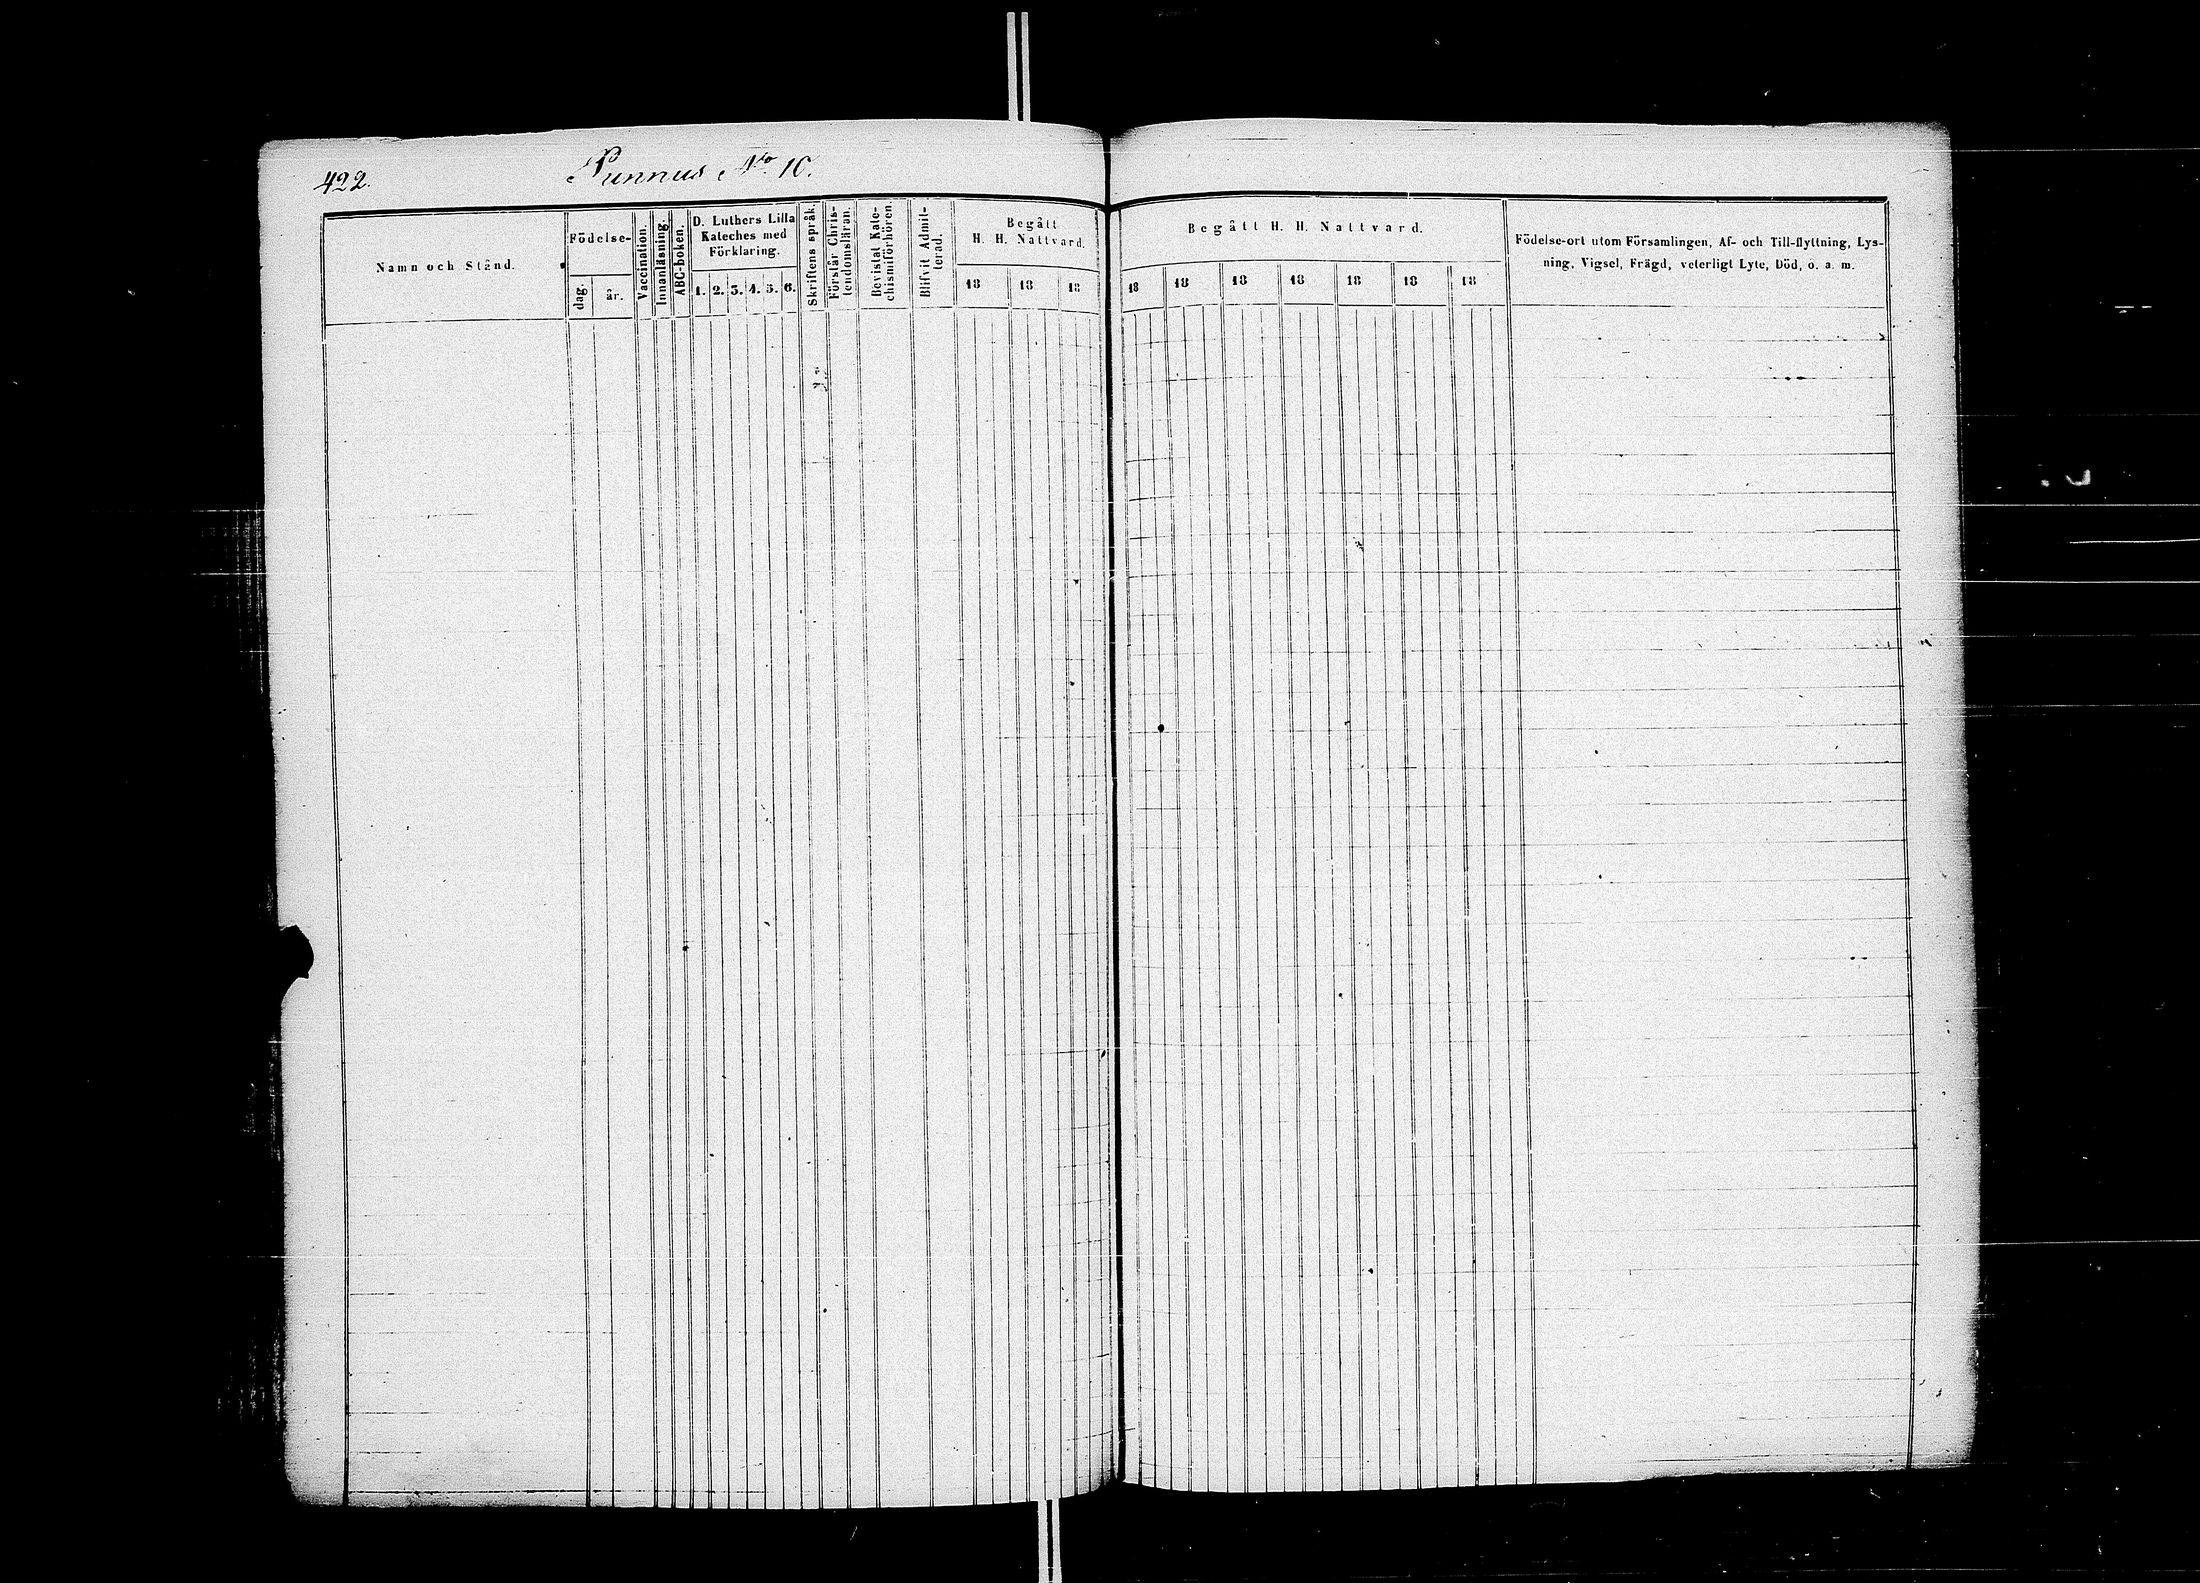 422.
Punnus No. 10.
Namn och Stånd.
Födelse-
dag.
år.
Vaccination.
Innanläsning.
ABC-boken.
D. Luthers Lilla
Kateches med
Förklaring.
1. 2. 3. 4. 5. 6.
Skriftens språk.
Förstår Chris-
tendomsläran.
Bevistat Kate-
chismiförhören.
Blifvit Admit-
terad.
Begått
H. H. Nattvard.
18 18 18
Begått H. H. Nattvard.
18 18 18 18 18 18 18
Födelse-ort utom Församlingen, Af- och Till-flyttning, Lys-
ning, Vigsel, Frägd, veterligt Lyte, Död, o. a. m.